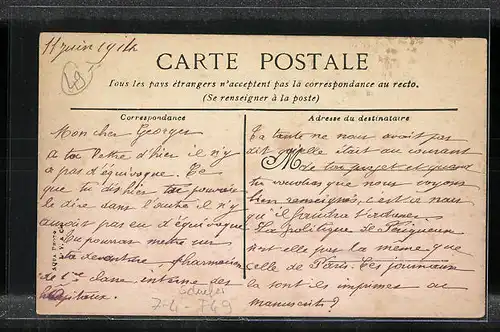 11 juin 1914
49
CARTE POSTALE
Tous les pays étrangers n'acceptent pas la correspondance au recto.
(Se renseigner à la poste)
Correspondance
Adresse du destinataire
Mon cher Georges
A ta lettre d'hier il n'y
a pas d'équivoque. Ce
que tu dis hier pouvoir
le dire dans l'autre il n'y
aurait pas eu d'équivoque
Tu pourras mettre sur
ta devanture pharmacien
de 1ère classe interne des
hôpitaux.
Ta tante ne nous avait pas
dit qu'elle était au courant
M
de ton projet et quand
tu voudras que nous soyons
bien renseignés, c'est à nous
qu'il faudra
La politique de Périgueux
n'est elle pas la même que
celle de Paris. Les journaux
là sont ils imprimés ou
manuscrits?
74-749